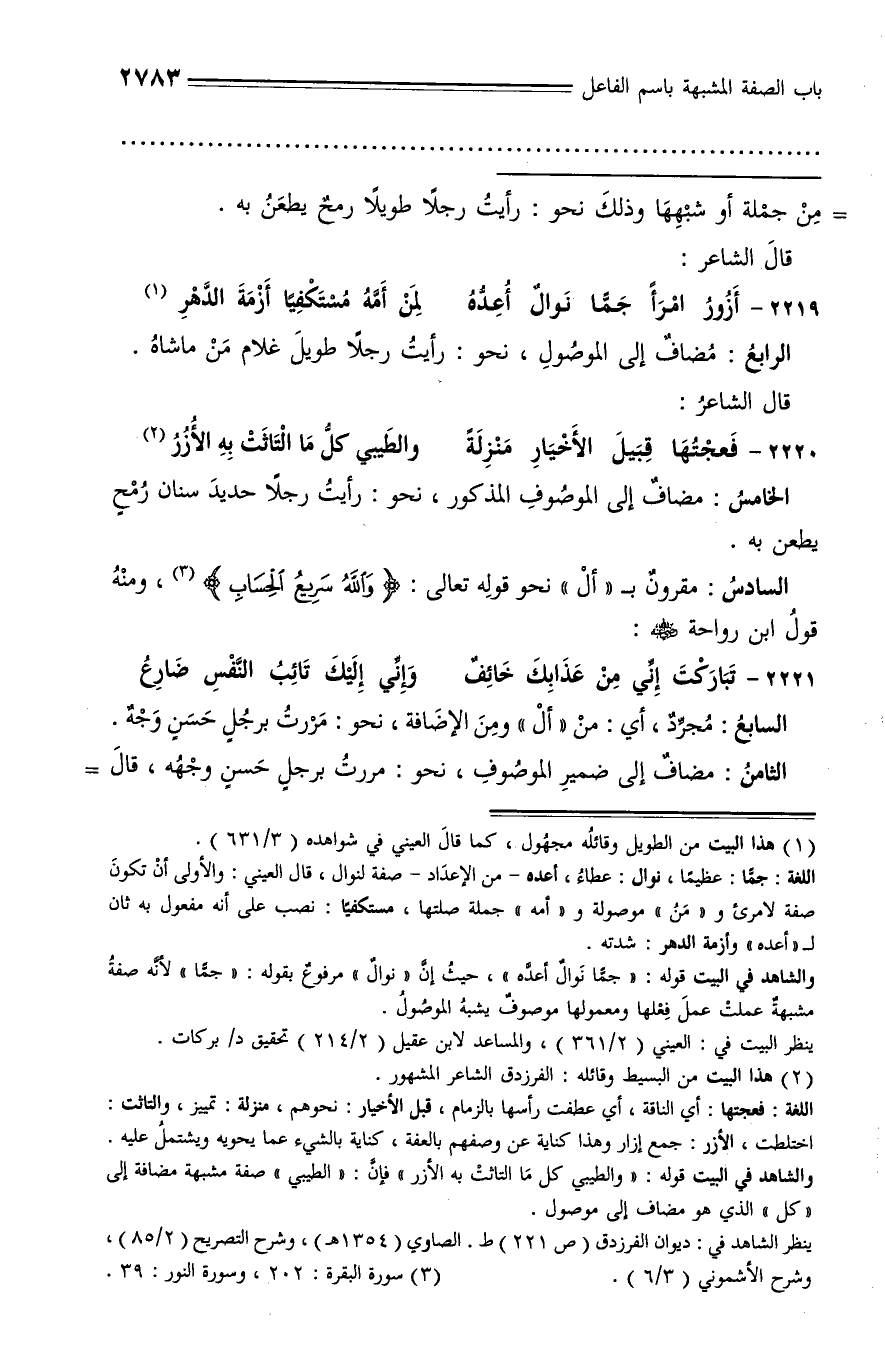 باب الصفة المشبهة باسم الفاعل ٢٧٨٣
= مِنْ جمْلة أو شبْهِهَا وذلكَ نحو : رأيتُ رجلًا طويلًا رمحٌ يطعَنُ به .
قالَ الشاعر :
٢٢١٩ - أَزُورُ امْرَأً جَمًّا نَوالٌ أُعِدُّهُ لِمَنْ أَمَّهُ مُسْتَكْفِيًا أَزْمَةَ الدَّهْرِ (١)
الرابعُ : مُضافٌ إلى الموصُولِ ، نحو : رأيتُ رجلًا طويلَ غلام مَنْ ماشاهُ .
قال الشاعرُ :
٢٢٢٠ - فَعجْتُهَا قِبَيلَ الأَخْيَارِ مَنْزِلَةً والطَيبي كلُّ مَا الْتَاثَتْ بِهِ الأُزُرُ (٢)
الخامسُ : مضافٌ إلى الموصُوفِ المذكور ، نحو : رأيتُ رجلًا حديدَ سنان رُمْحٍ
يطعن به .
السادسُ : مقرونٌ بـ « ألْ » نحو قولِه تعالى : ﴿ وَٱللَّهُ سَرِيعُ ٱلْحِسَابِ ﴾ (٣) ، ومنْهُ
قولُ ابن رواحة ﷺ :
٢٢٢١ - تَبَارَكْتَ إِنِّي مِنْ عَذَابِكَ خَائِفٌ وَإِنِّي إِلَيْكَ تَائِبُ النَّفْسِ ضَارِعُ
السابعُ : مُجرَّدٌ ، أي : منْ « ألْ » ومِنَ الإضَافة ، نحو : مَرْرتُ برجُلٍ حَسَنٍ وَجْهٌ .
الثامنُ : مضافٌ إلى ضميرِ الموصُوفِ ، نحو : مررتُ برجلٍ حَسنٍ وجْهُه ، قالَ =
(١) هذا البيت من الطويل وقائلُه مجهُول ، كما قالَ العيني في شواهده ( ٦٣١/٣ ) .
اللغة : جمًّا : عظيمًا ، نوال : عطاءُ ، أعده - من الإعدَاد - صفة لنوال ، قال العيني : والأولى أنْ تكونَ
صفة لامرئ و « مَنُ » موصولة و « أمه » جملة صلتها ، مستكفيًا : نصب على أنه مفعول به ثان
لـ «أعده» وأزمة الدهر : شدته .
والشاهد في البيت قوله : « جمًّا نَوالٌ أعدَّه » ، حيثُ إنَّ « نوالٌ » مرفوعٌ بقوله : « جمًّا » لأنَّه صفةُ
مشبهةٌ عملتْ عملَ فِعْلها ومعمولها موصوفٌ يشبهُ الموصُولُ .
ينظر البيت في : العيني ( ٣٦١/٢ ) ، والمساعد لابن عقيل ( ٢١٤/٢ ) تحقيق د/ بركات .
(٢) هذا البيت من البسيط وقائله : الفرزدق الشاعر المشهور .
اللغة : فعجتها : أي الناقة ، أي عطفت رأسها بالزمام ، قبل الأخيار : نحوهم ، منزلة : تمييز ، والتاثت :
اختلطت ، الأزر : جمع إزار وهذا كناية عن وصفهم بالعفة ، كناية بالشيء عما يحويه ويشتملُ عليه .
والشاهد في البيت قوله : « والطيبي كل مَا التاثتْ به الأزر » فإنَّ : « الطيبي » صفة مشبهة مضافة إلى
«كل » الذي هو مضاف إلى موصول .
ينظر الشاهد في : ديوان الفرزدق ( ص ٢٢١ ) ط . الصاوي ( ١٣٥٤هـ ) ، وشرح التصريح ( ٨٥/٢ ) ،
وشرح الأشموني ( ٦/٣ ) . (٣) سورة البقرة : ٢٠٢ ، وسورة النور : ٣٩ .